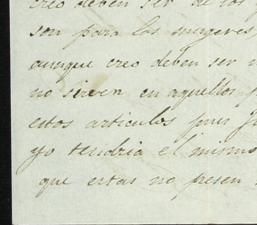 creo deben ser de los
son para los mayores
aunque creo deben ser
no sirven en aquellos
estos articulos pues
yo tendria el mismo
que estas no pesen